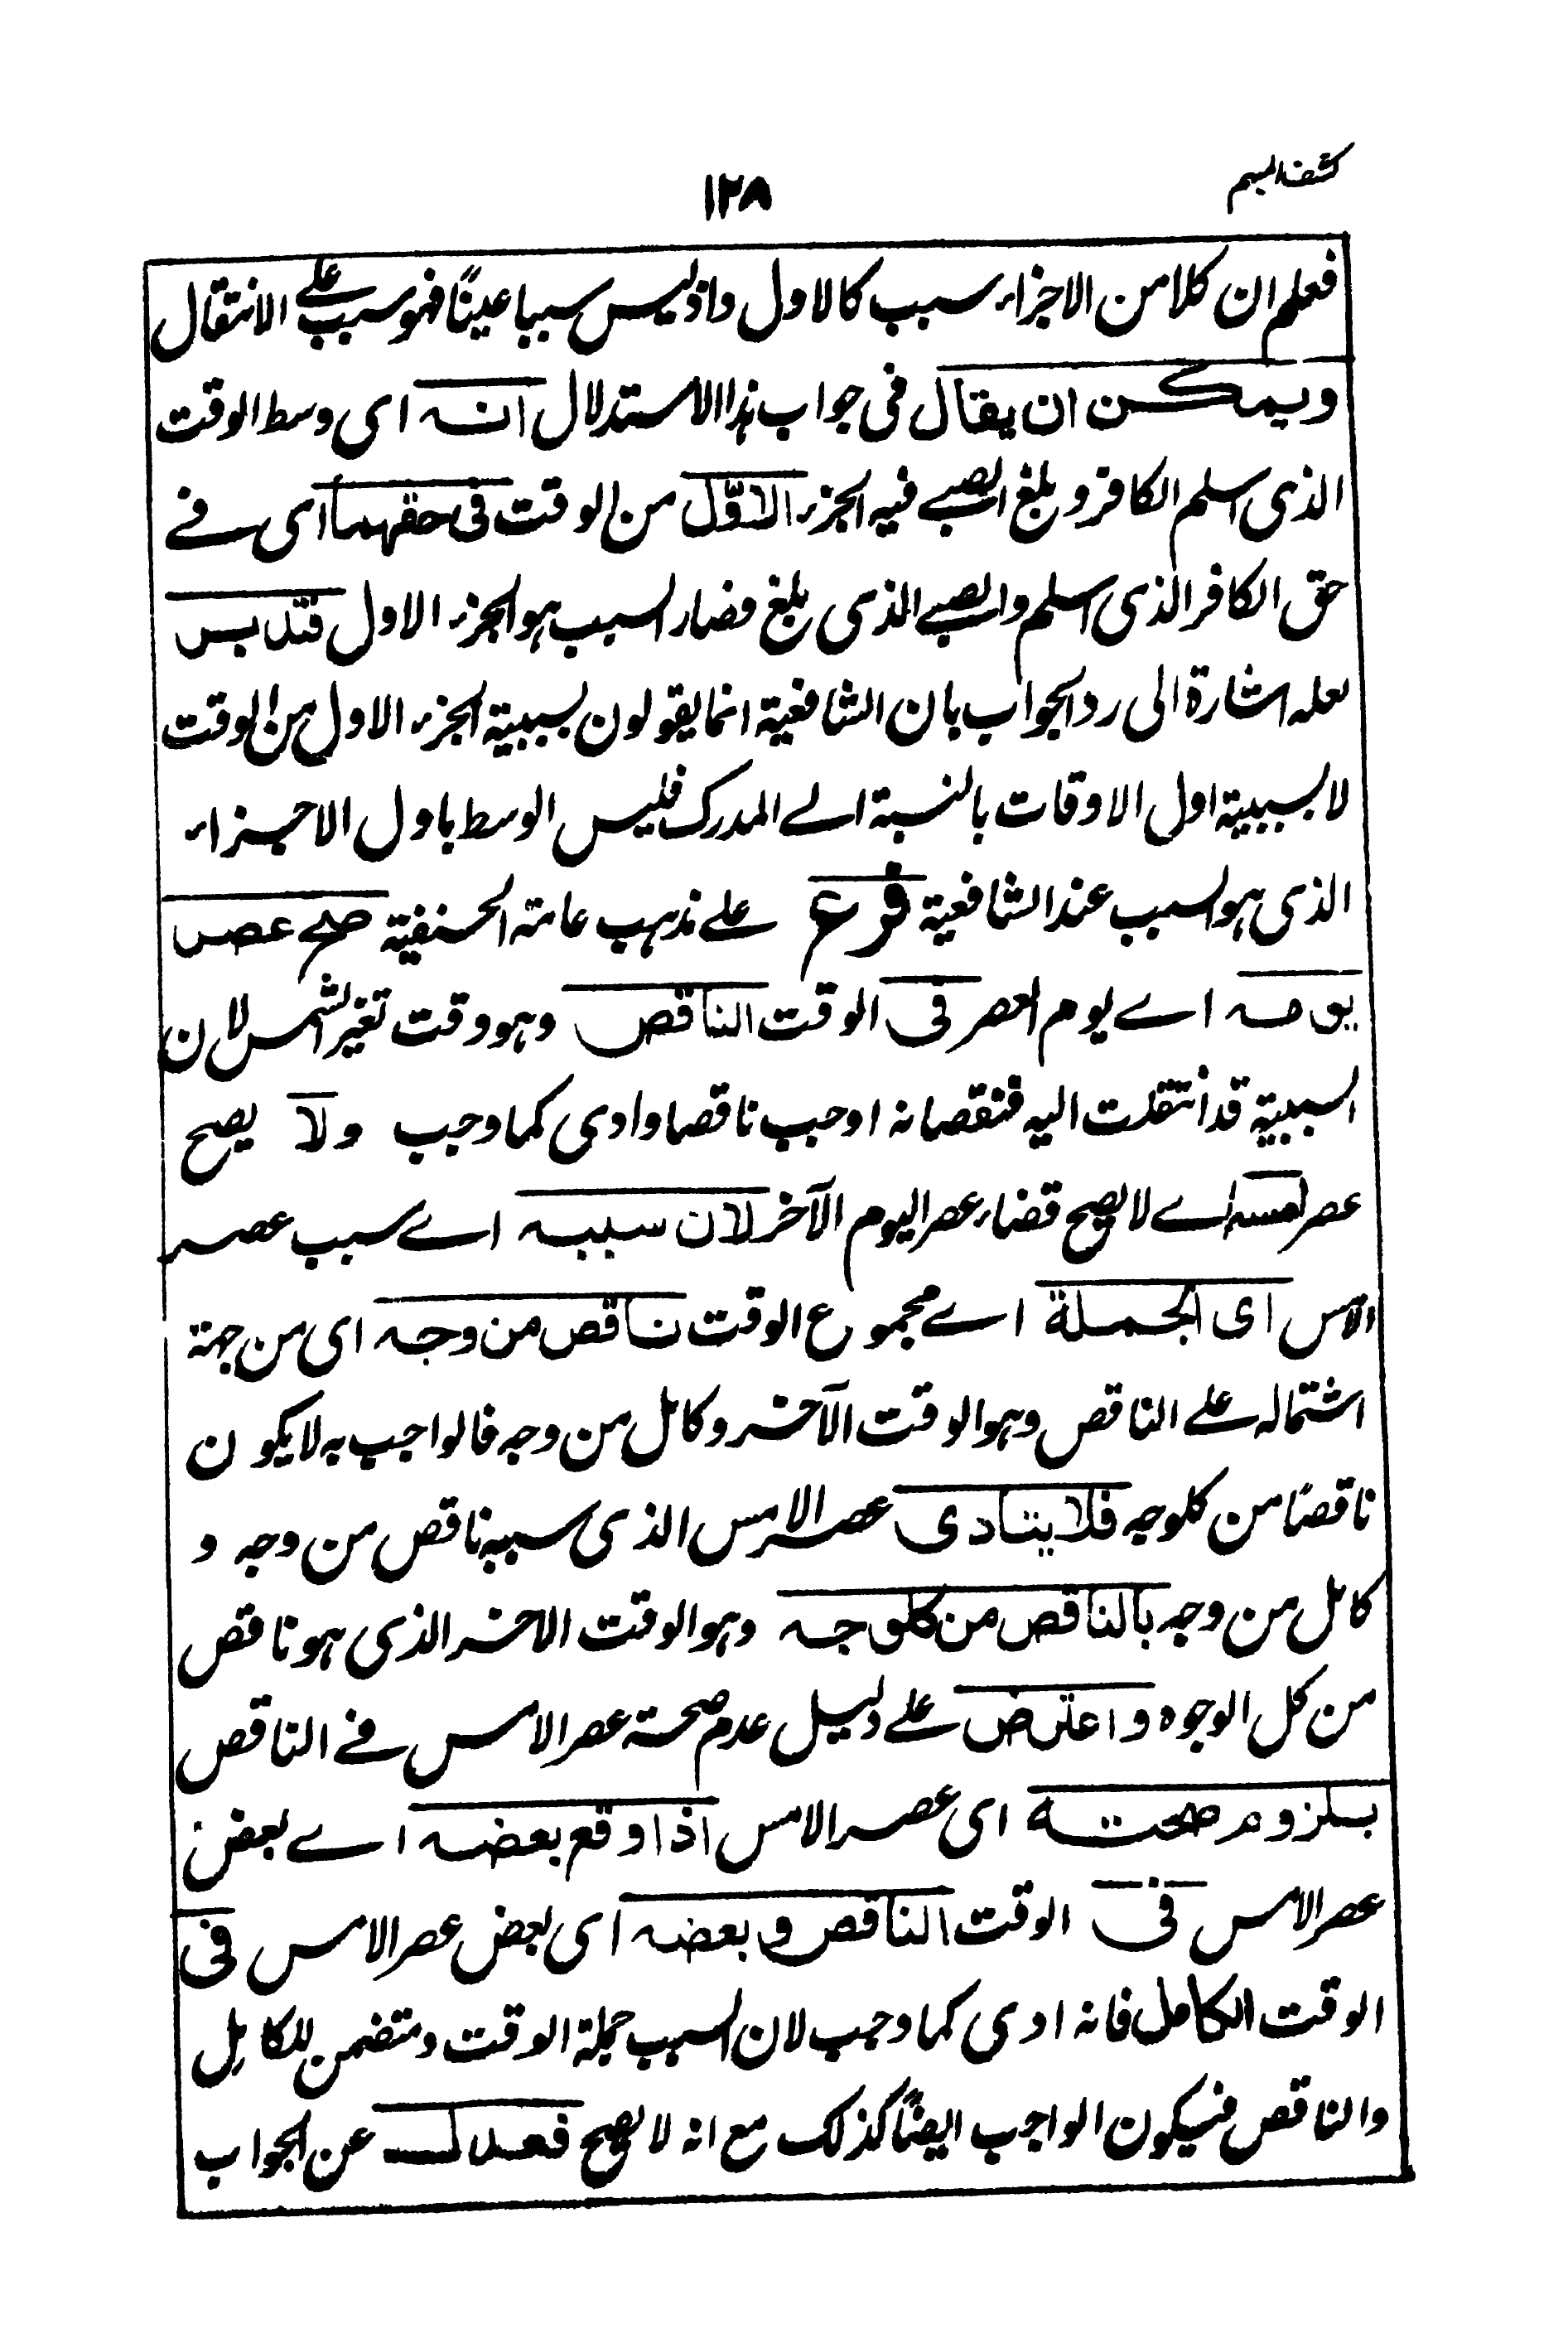 كشف المبهم
١٢٨
فعلم ان كلا من الاجزاء سبب كالاول واذ ليس سببا عينًا فهو سبب على الانتقال
ويمكن ان يقال فى جواب هذا الاستدلال انه اى وسط الوقت
الذى اسلم الكافر و بلغ الصبے فيه الجزء الاوّل من الوقت فى حقهما اى فے
حق الكافر الذى اسلم والصبے الذى بلغ فصار السبب هو الجزء الاول فتدبر
لعله اشارة الى رد الجواب بان الشافعية انما يقولون بسببية الجزء الاول من الوقت
لا بسببية اول الاوقات بالنسبة الے المدرك فليس الوسط باول الاجزاء
الذى هو السبب عند الشافعية فرع علے مذهب عامة الحنفية صح عصر
يومه اے يوم العصر فى الوقت الناقص وهو وقت تغير الشمس لان
السببية قد انتقلت اليه فنقصانه اوجب ناقصا وادى كما وجب ولا يصح
عصر امسه اے لا يصح قضاء عصر اليوم الآخر لان سببه اے سبب عصر
الامس اى الجملة اے مجموع الوقت ناقص من وجه اى من جهة
اشتماله علے الناقص وهو الوقت الآخر وكامل من وجه فالواجب به لا يكون
ناقصًا من كلوجه فلا يتادى عصر الامس الذى سببه ناقص من وجه و
كامل من وجه بالناقص من كلوجه وهو الوقت الاخر الذى هو ناقص
من كل الوجوه واعترض علے دليل عدم صحة عصر الامس فے الناقص
بلزوم صحته اى عصر الامس اذا وقع بعضه اے بعض
عصر الامس فى الوقت الناقص و بعضه اى بعض عصر الامس فى
الوقت الكامل فانه ادى كما وجب لان السبب جملة الوقت و متضمن للكامل
والناقص فيكون الواجب ايضًا كذلك مع انه لا يصح فعدل عن الجواب